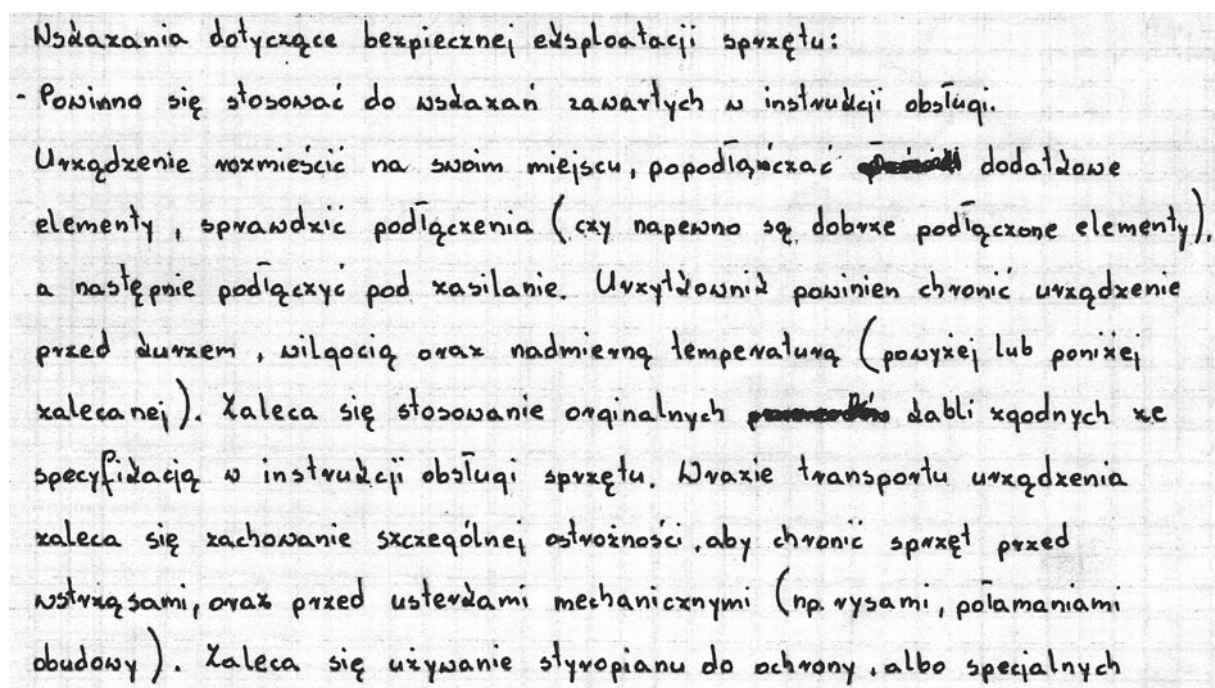 Wskazania dotyczące bezpiecznej eksploatacji sprzętu:
- Powinno się stosować do wskazań zawartych w instrukcji obsługi.
Urządzenie rozmieścić na swoim miejscu, popodłączać dodatkowe
elementy, sprawdzić podłączenia (czy napewno są dobrze podłączone elementy),
a następnie podłączyć pod zasilanie. Użytkownik powinien chronić urządzenie
przed kurzem, wilgocią oraz nadmierną temperaturą (powyżej lub poniżej
zalecanej). Zaleca się stosowanie orginalnych kabli zgodnych ze
specyfikacją w instrukcji obsługi sprzętu. Wrazie transportu urządzenia
zaleca się zachowanie szczególnej ostrożności, aby chronić sprzęt przed
wstrząsami, oraz przed usterkami mechanicznymi (np. rysami, połamaniami
obudowy). Zaleca się używanie styropianu do ochrony, albo specjalnych